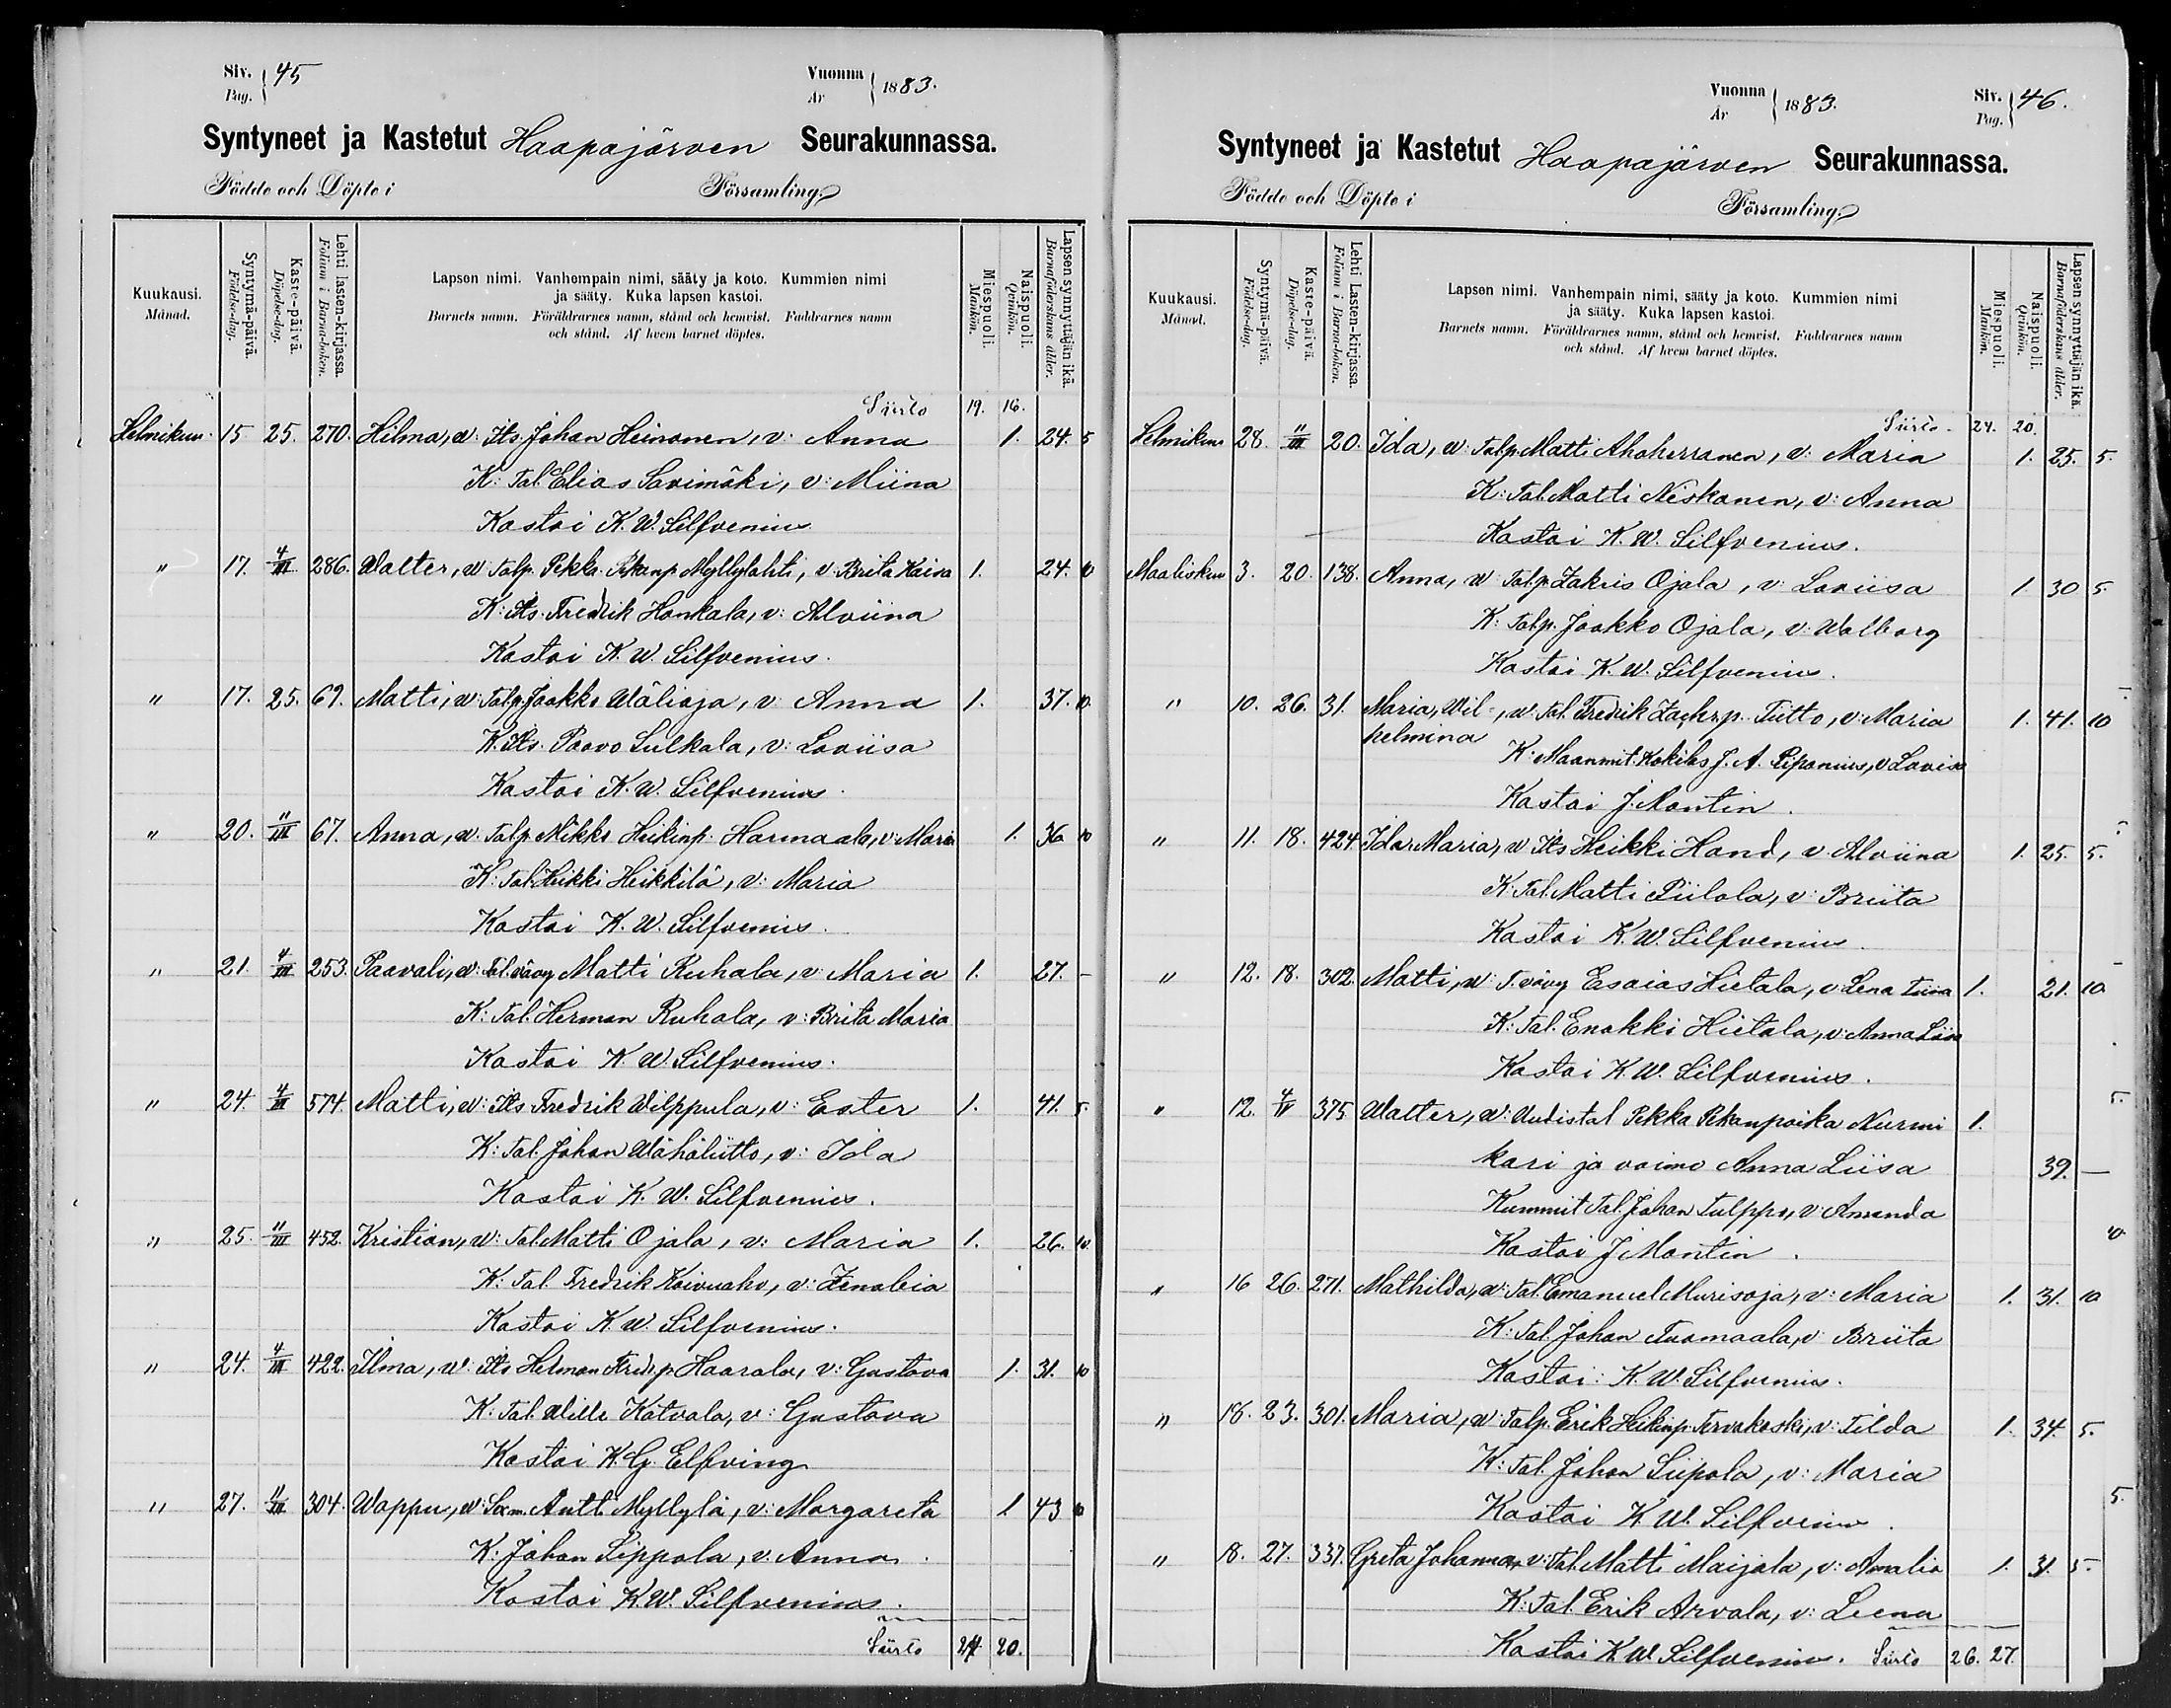 Siv. Pag. 45
Vuonna År 1883.
Syntyneet ja Kastetut Haapajärven Seurakunnassa.
Födde och Döpte i Församling.
Kuukausi. Månad.
Syntymä-päivä. Födelse-dag.
Kaste-päivä. Döpelse-dag.
Lehti lasten-kirjassa. Folium i Barna-boken.
Lapsen nimi. Vanhempain nimi, sääty ja koto. Kummien nimi
ja sääty. Kuka lapsen kastoi.
Barnets namn. Föräldrarnes namn, stånd och hemvist. Faddrarnes namn
och stånd. Af hvem barnet döptes.
Miespuoli. Mankön.
Naispuoli. Qvinkön.
Lapsen synnyttäjän ikä. Barnaföderskans ålder.
Siirto 19. 16.
Helmikuu 15 25. 270. Hilma, w: Its. Johan Heinonen, v: Anna 1. 24. 5
K: Tal. Elias Savimäki, v: Miina
Kastoi K. W. Silfvenius
" 17. 4/III 286. Walter, w Talp. Pekka Pekanp Myllylahti, v: Brita Kaisa 1. 24. 10
K: Its. Fredrik Honkala, v: Alviina
Kastoi K. W. Silfvenius.
" 17. 25. 69. Matti, w: Talp. Jaakko Wälioja, v: Anna 1. 37. 10.
K. Its. Paavo Sulkala, v: Loviisa
Kastoi K. W. Silfvenius.
" 20. 11/III 67. Anna, w. Talp Mikko Heikinp. Harmaala, v: Maria 1. 36 10
K: Tal. Heikki Heikkilä, v: Maria
Kastoi K. W. Silfvenius.
" 21. 4/III 253. Paavali, w: Tal. vävy Matti Ruhala, v: Maria 1. 27. -
K: Tal. Herman Ruhala, v: Brita Maria
Kastoi K. W. Silfvenius.
" 24. 4/III 574. Matti, w: Its Fredrik Wilppula, v: Ester 1. 41. 5.
K: Tal. Johan Wähäliitto, v: Ida
Kastoi K. W. Silfvenius.
" 25. 11/III 452. Kristian, w: Tal. Matti Ojala, v: Maria 1. 26. 10.
K: Tal. Fredrik Koivuaho, v: Zenobia
Kastoi K. W. Silfvenius.
" 24. 4/III 422. Ilma, w: Its Herman Fredr.p Haarala, v: Gustava 1. 31. 10
K: Tal. Wille Katvala, v: Gustava
Kastoi K. G. Elfving
" 27. 11/III 304. Wappu, w: Antti Myllylä, v: Margareta 1 43 10
K: Johan Sippola, v: Anna.
Kastoi K. W. Silfvenius.
Siirto 24 20.
Vuonna År 1883.
Siv. Pag. 46.
Syntyneet ja Kastetut Haapajärven Seurakunnassa.
Födde och Döpte i Församling.
Kuukausi. Månad.
Syntymä-päivä. Födelse-dag.
Kaste-päivä. Döpelse-dag.
Lehti Lasten-kirjassa. Folium i Barna-boken.
Lapsen nimi. Vanhempain nimi, sääty ja koto. Kummien nimi
ja sääty. Kuka lapsen kastoi.
Barnets namn. Föräldrarnes namn, stånd och hemvist. Faddrarnes namn
och stånd. Af hvem barnet döptes.
Miespuoli. Mankön.
Naispuoli. Qvinkön.
Lapsen synnyttäjän ikä. Barnaföderskans ålder.
Siirto. 24. 20.
Helmikuu 28. 11/III 20. Ida, w: Talp. Matti Ahoherranen, v: Maria 1. 25. 5.
K: Tal. Matti Niskanen, v: Anna
Kastoi K. W. Silfvenius.
Maaliskuu 3. 20. 138. Anna, w: Talp. Zakris Ojala, v: Loviisa 1. 30 5.
K: Talp. Jaakko Ojala, v: Walborg
Kastoi K. W. Silfvenius.
" 10. 26. 31. Maria, Wil-, w. Tal. Fredrik Zachr.p. Tiitto, v: Maria 1. 41. 10
helmina
K: Maanmit. Kokilas J. A. Piponius, v Lovisa
Kastoi J. Montin.
" 11. 18. 424 Ida Maria, w Its Heikki Hand, v Alviina 1. 25. 5.
K: Tal. Matti Piilola, v: Briita
Kastoi K. W. Silfvenius.
" 12. 18. 302. Matti, w: T. vävy Esaias Hietala, v: Lena Liisa 1. 21. 10.
K: Tal. Enokki Hietala, v: Anna Liisa
Kastoi K. W. Silfvenius.
" 12. 4/IV 375 Walter, w: Uudistal Pekka Pekanpoika Nurmi 1.
kari ja vaimo Anna Liisa 39. -
Kummit Tal. Johan Tulppo, v: Amanda
Kastoi J Montin.
" 16 26. 271. Mathilda, w: Tal. Emanuel Murisoja, v: Maria 1. 31. 10
K: Tal. Johan Tuomaala, v: Briita
Kastoi: K. W. Silfvenius.
" 18. 23. 301. Maria, w: Talp. Erik Heikinp. Tervakoski, v: Tilda 1. 34. 5.
K: Tal. Johan Siipola, v: Maria
Kastoi K. W. Silfvenius.
" 18. 27. 337. Greta Johanna, v: Tal. Matti Maijala, v: Amalia 1. 31. 5.
K: Tal. Erik Arvola, v: Leena
Kastoi K. W. Silfvenius. Siirto 26. 27.